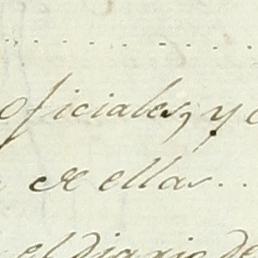 oficiales, y
de ellas...
el Diario de